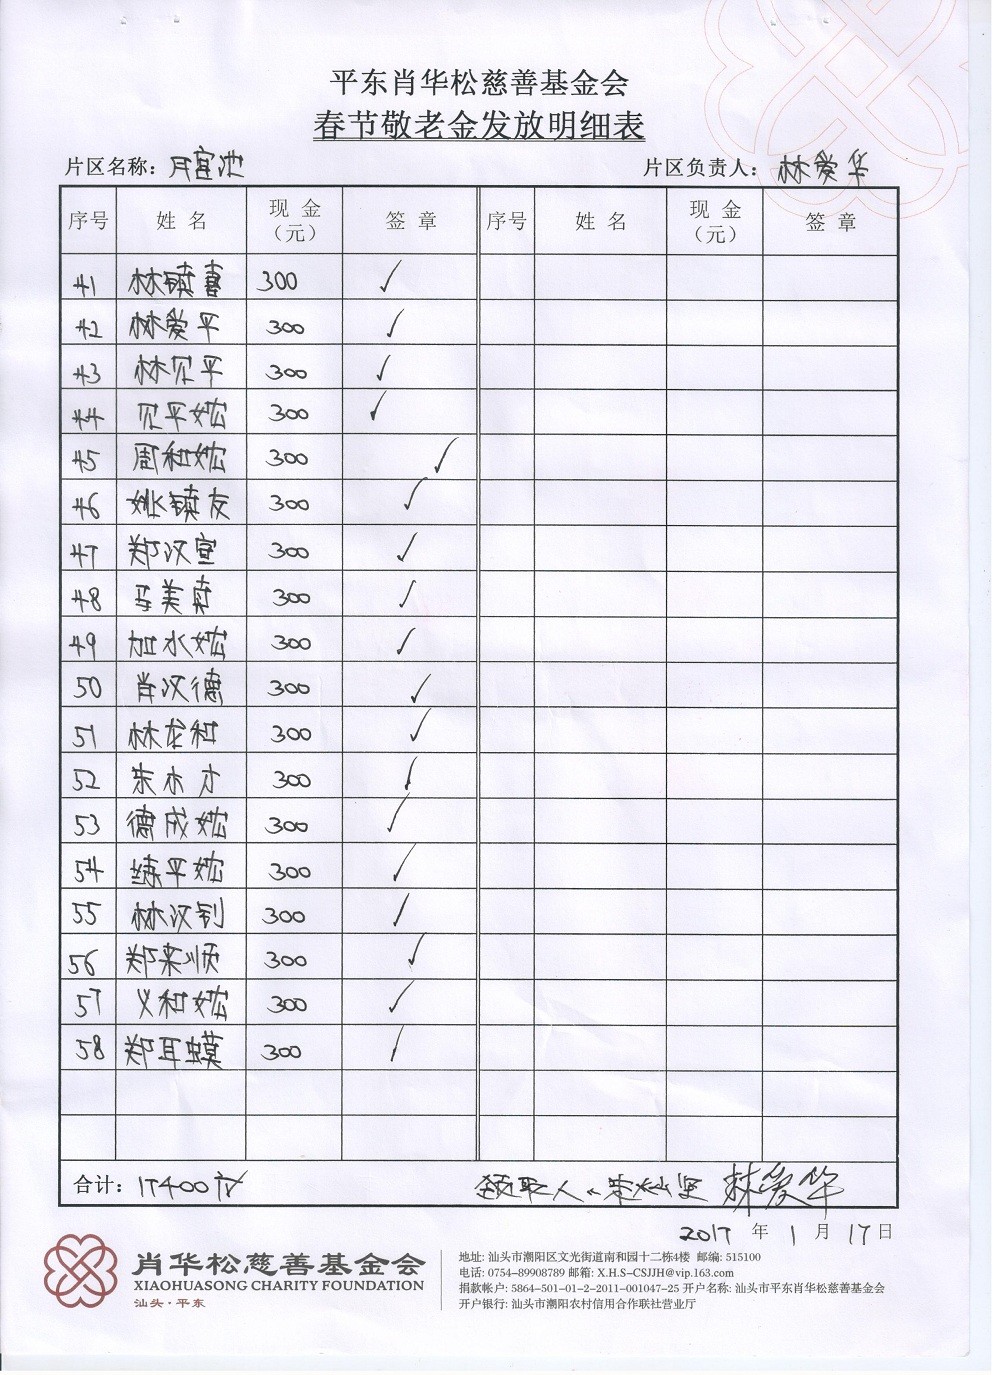 平东肖华松慈善基金会
春节敬老金发放明细表
片区名称：月宫池 片区负责人：林爱华
序号 姓名 现金（元） 签章 序号 姓名 现金（元） 签章
41 林镇喜 300 ✓
42 林爱平 300 ✓
43 林见平 300 ✓
44 见平嫲 300 ✓
45 周和嫲 300 ✓
46 姚镇友 300 ✓
47 郑汉宣 300 ✓
48 马美真 300 ✓
49 加水嫲 300 ✓
50 肖汉德 300 ✓
51 林龙和 300 ✓
52 朱木才 300 ✓
53 德成嫲 300 ✓
54 练平嫲 300 ✓
55 林汉钊 300 ✓
56 郑来顺 300 ✓
57 义和嫲 300 ✓
58 郑耳蟆 300 ✓
合计：17400元 领取人 林爱华
2017 年 1 月 17 日
肖华松慈善基金会
XIAOHUASONG CHARITY FOUNDATION
汕头·平东
地址: 汕头市潮阳区文光街道南和园十二栋4楼 邮编: 515100
电话: 0754-89908789 邮箱: X.H.S-CSJJH@vip.163.com
捐款帐户: 5864-501-01-2-2011-001047-25 开户名称: 汕头市平东肖华松慈善基金会
开户银行: 汕头市潮阳农村信用合作联社营业厅